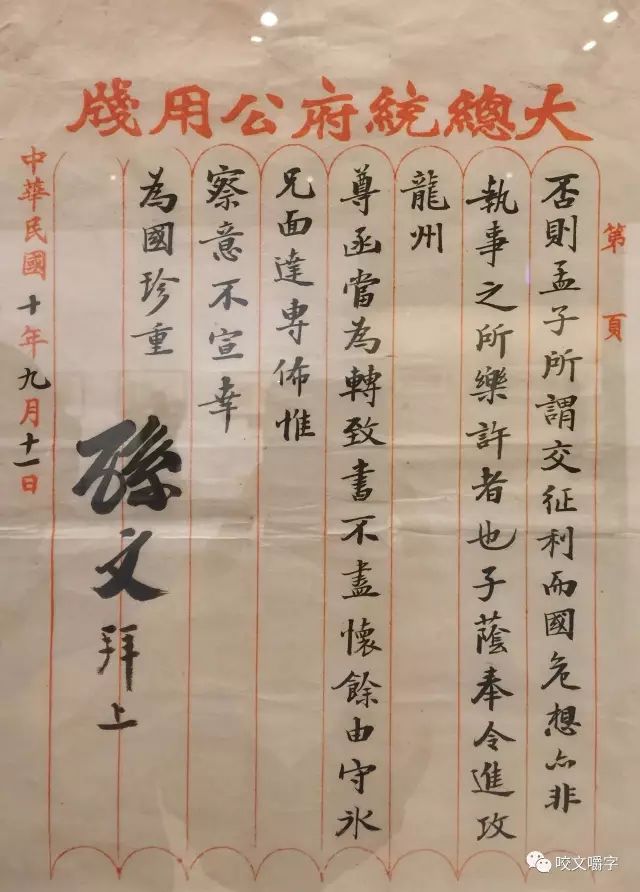 大總統府公用牋
第 頁
否則孟子所謂交征利而國危想亦非
執事之所樂許者也子蔭奉令進攻
龍州
尊函當為轉致書不盡懷餘由守冰
兄面達專佈惟
察意不宣幸
為國珍重
孫文拜上
中華民國十年九月十一日
咬文嚼字